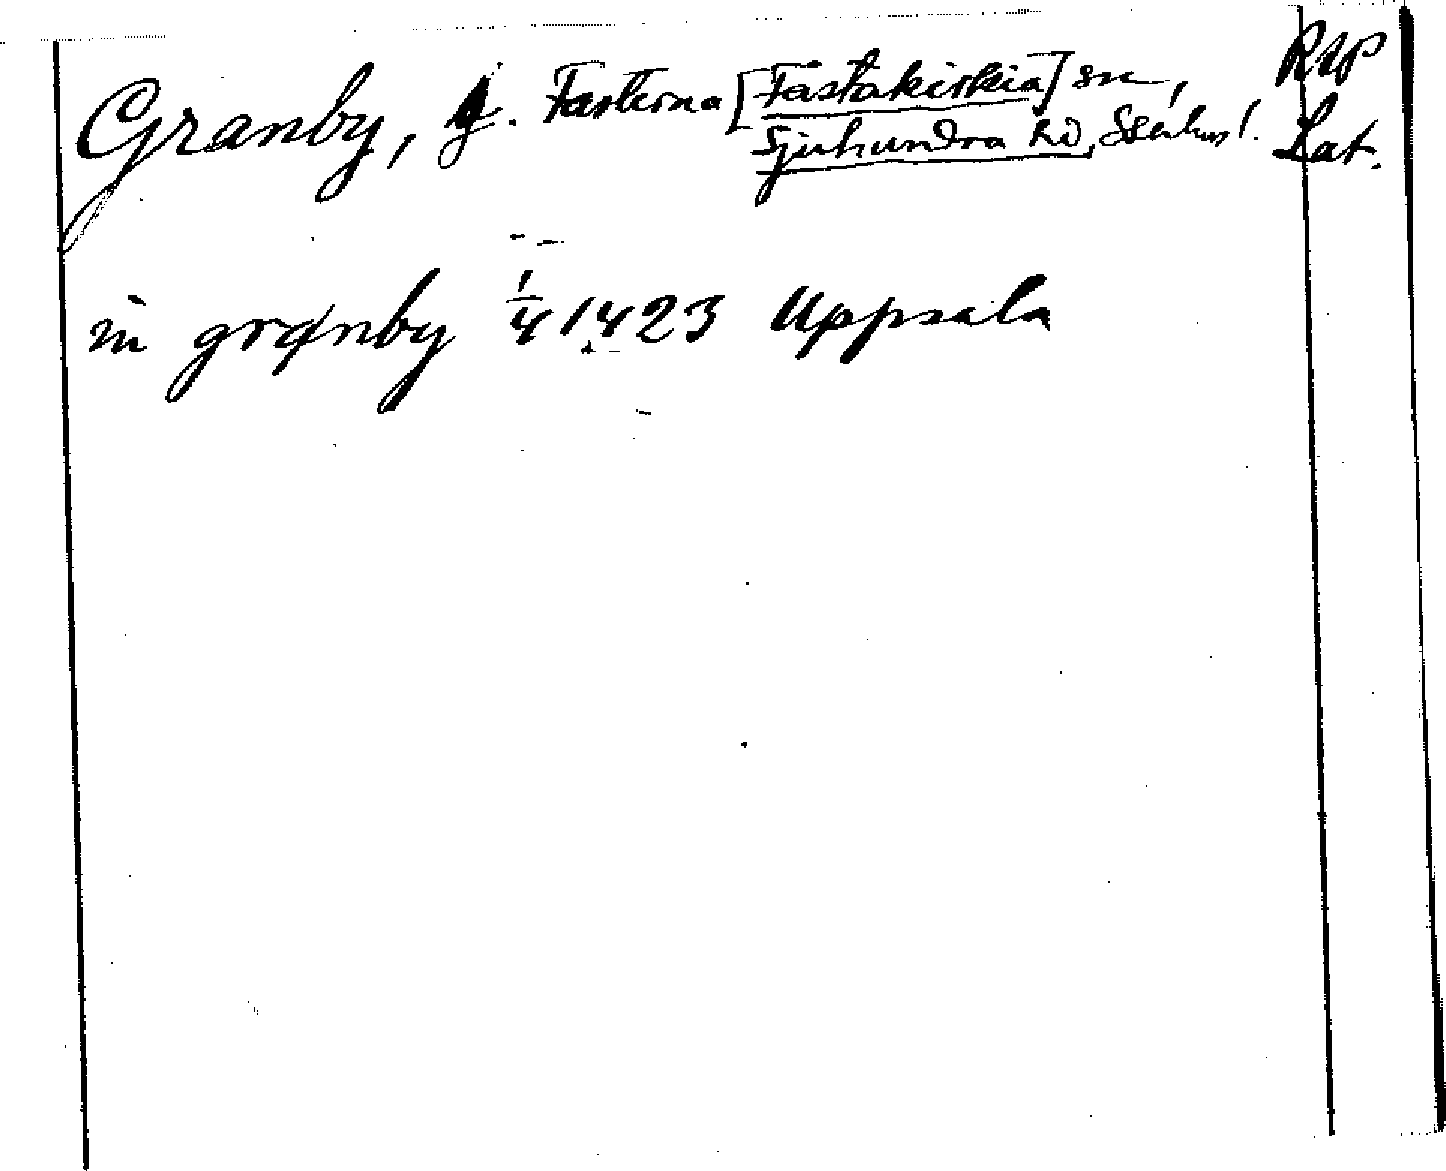 Granby, g. Fasterna [Fastakirkia] sn, RAP
Sjuhundra hd, Sthlms l. Lat.
in grænby 1/4 1423 Uppsala